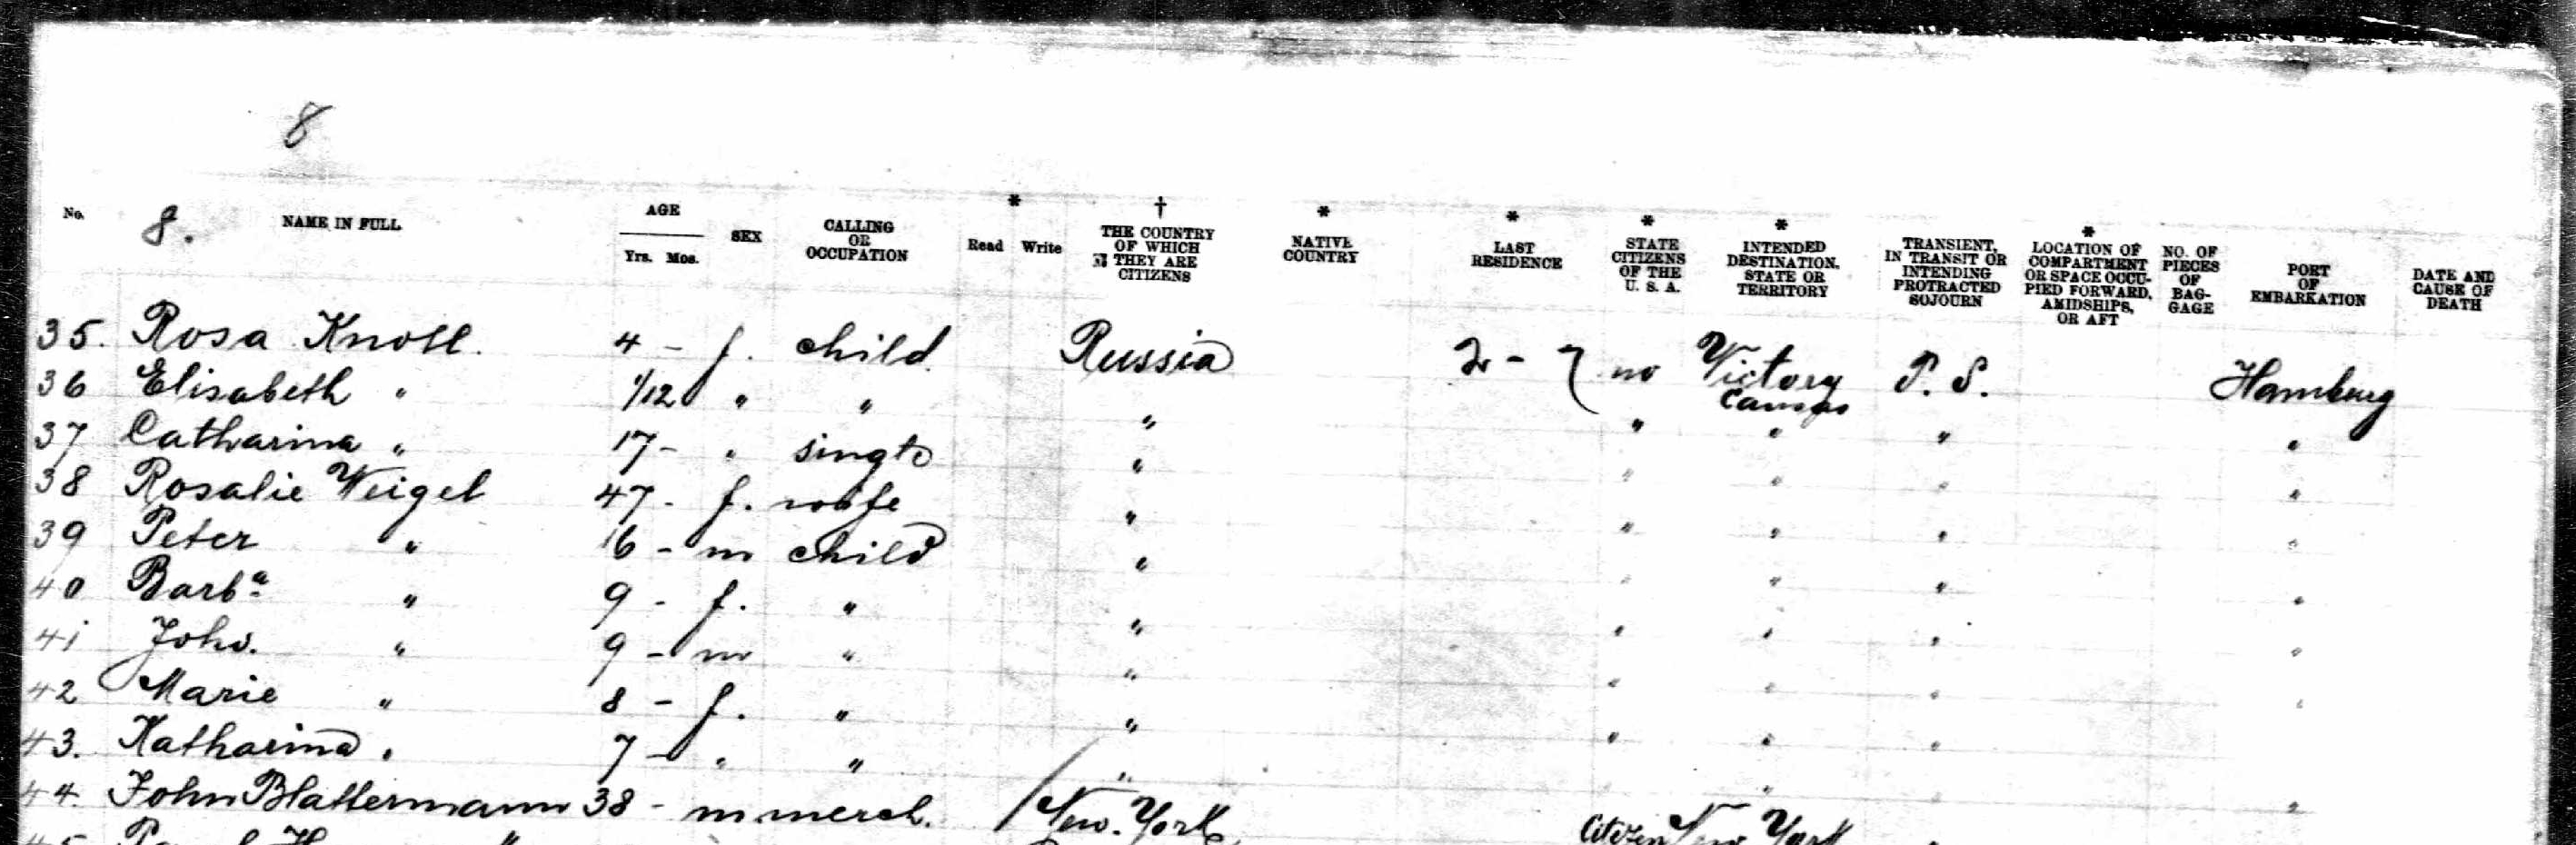 8
No. 8. NAME IN FULL AGE Yrs. Mos. SEX CALLING OR OCCUPATION * Read Write † THE COUNTRY OF WHICH THEY ARE CITIZENS * NATIVE COUNTRY * LAST RESIDENCE * STATE CITIZENS OF THE U. S. A. * INTENDED DESTINATION, STATE OR TERRITORY TRANSIENT, IN TRANSIT OR INTENDING PROTRACTED SOJOURN * LOCATION OF COMPARTMENT OR SPACE OCCUPIED FORWARD, AMIDSHIPS, OR AFT NO. OF PIECES OF BAGGAGE PORT OF EMBARKATION DATE AND CAUSE OF DEATH
35. Rosa Knoll. 4 - f. child. Russia 2 - 7 no Victory Cansas P. S. Hamburg
36 Elisabeth " 1/12 " " " " " " "
37 Catharina " 17 - " single " " " " "
38 Rosalie Weigel 47 - f. wife " " " " "
39 Peter " 16 - m child " " " " "
40 Barba " 9 - f. " " " " " "
41 Joho. " 9 - m " " " " " "
42 Marie " 8 - f. " " " " " "
43. Katharina " 7 - " " " " " "
44. John Blattermann 38 - m merch. New. York Citizen New York "